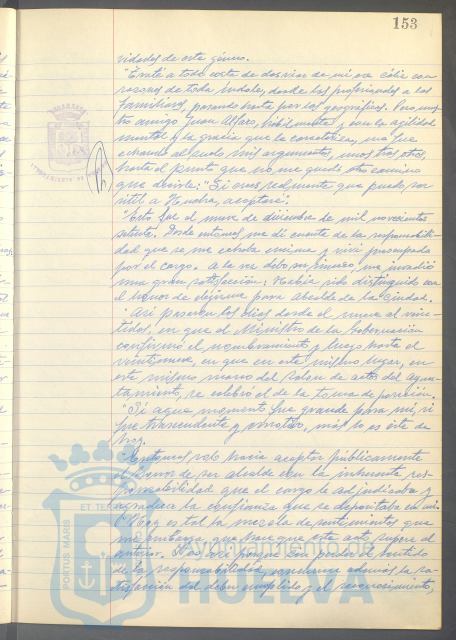 153
vidades de este género.
"Evité a todo coste de desviar de mí ese cáliz con
razones de toda índole, desde las profesionales a las
familiares, pasando hasta por las geográficas. Pero nues-
tro amigo Juan Alfaro, hábilmente y con la agilidad
mental y la gracia que le caracteriza, me fue
echando al suelo mis argumentos, unos tras otros,
hasta el punto que no me quedó otro camino
que decirle: "Si crees realmente que puedo ser
útil a Huelva, aceptaré".
"Esto fue el nueve de diciembre de mil novecientos
setenta. Desde entonces me di cuenta de la responsabili-
dad que se me echaba encima y viví preocupado
por el cargo. A la vez debo ser sincero, me invadió
una gran satisfacción: Había sido distinguido con
el honor de elegirme para Alcalde de la Ciudad.
"Así pasaron los días desde el nueve al vein-
tidós, en que el Ministro de la Gobernación
confirmó el nombramiento y luego hasta el
veintinueve, en que en este mismo lugar, en
este mismo marco del Salón de actos del Ayun-
tamiento, se celebró el de la toma de posesión.
"Si aquel momento fue grande para mí, si
fue trascendente y emotivo, más lo es éste de
hoy.
"Entonces solo hacía aceptar públicamente
el honor de ser alcalde con la inherente res-
ponsabilidad que el cargo le adjudicaba y
agradecer la confianza que se depositaba en mí.
"Hoy es tal la mezcla de sentimientos que
me embarga, que hace que este acto supere al
anterior. Y es así porque, sin perder el sentido
de la responsabilidad, concurre además la sa-
tisfacción del deber cumplido y el reconocimiento,
PORTUS MARIS
ET TE
Ayuntamiento de
HUELVA